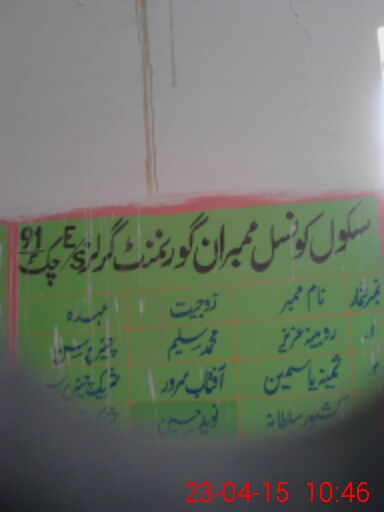 سکول کونسل ممبران گورنمنٹ گرلز E/S چک 91
نمبر شمار نام ممبر زوجیت عہدہ
۱۔ روبینہ عزیز محمد سلیم
ثمینہ یاسمین آفتاب سرور
کشور سلطانہ نوید حسین
23-04-15 10:46